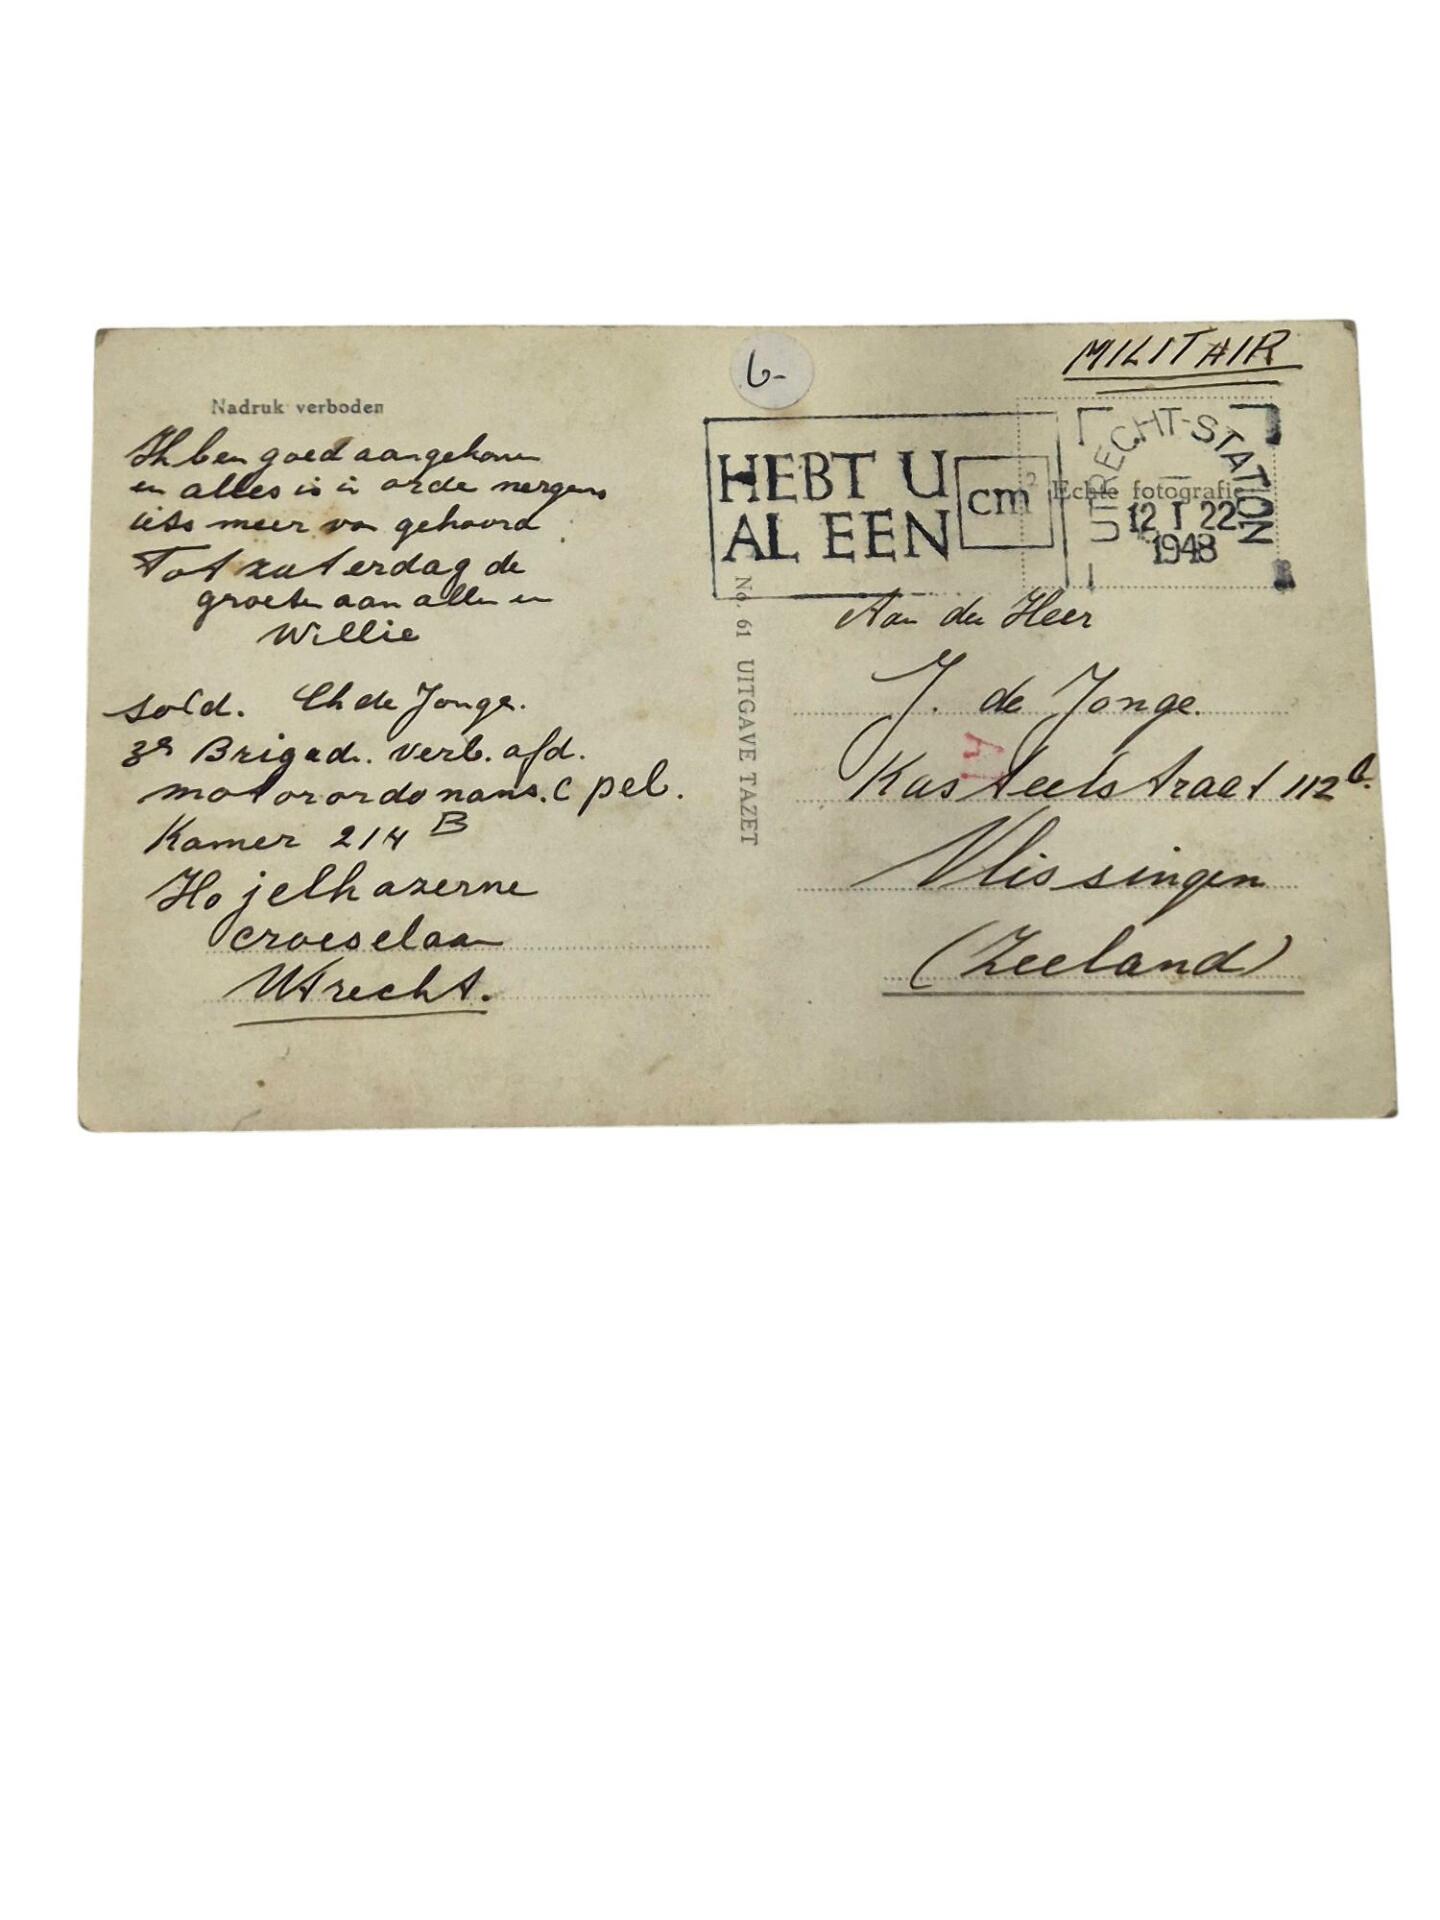 Nadruk verboden
Ik ben goed aangekomen
en alles is in orde nergens
iets meer van gehoord
Tot zaterdag de
groeten aan allen en
Willie
sold. Ch de Jonge.
3e Brigade. verb. afd.
motorordonnans. C pel.
Kamer 214 B
Hojelkazerne
croeselaan
Utrecht.
6-
No. 61 UITGAVE TAZET
MILITAIR
HEBT U
AL EEN
cm²
UTRECHT-STATION
Echte fotografie
12 I 22
1948
Aan den Heer
J. de Jonge.
Kasteelstraat 112 b.
Vlissingen
(Zeeland)